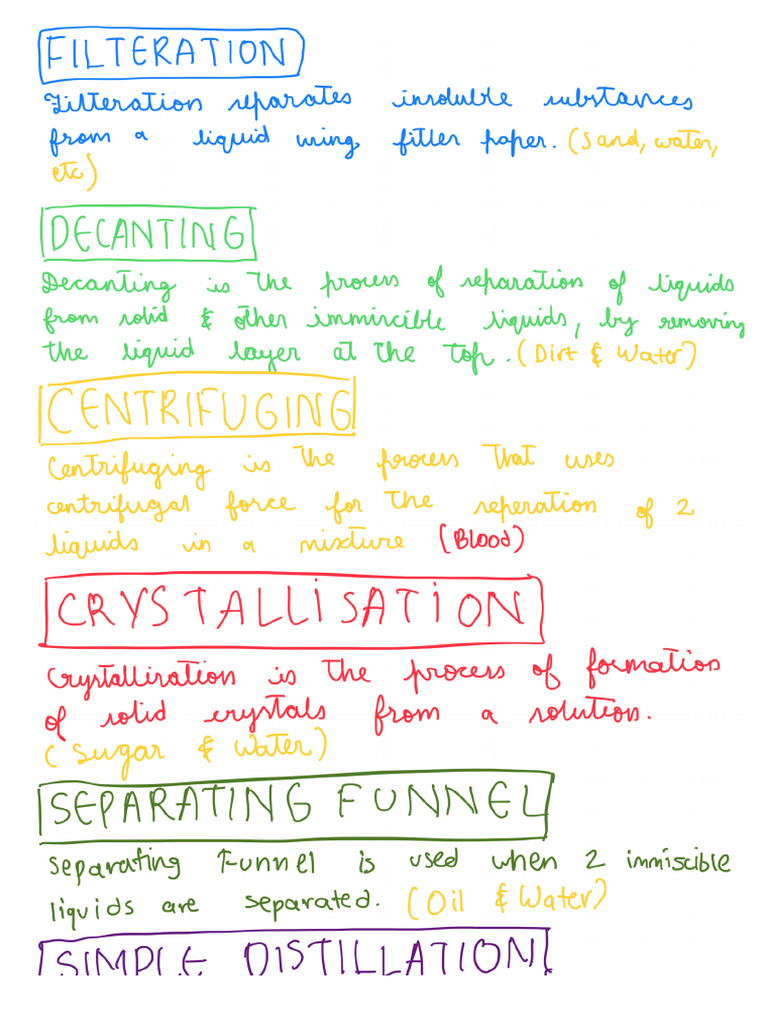 FILTERATION
Filteration separates insoluble substances
from a liquid using filter paper. (Sand, water,
etc)
DECANTING
Decanting is the process of separation of liquids
from solid & other immiscible liquids, by removing
the liquid layer at the top. (Dirt & Water)
CENTRIFUGING
Centrifuging is the process that uses
centrifugal force for the seperation of 2
liquids in a mixture (Blood)
CRYSTALLISATION
Crystallisation is the process of formation
of solid crystals from a solution.
(Sugar & Water)
SEPARATING FUNNEL
Separating Funnel is used when 2 immiscible
liquids are separated. (Oil & Water)
SIMPLE DISTILLATION